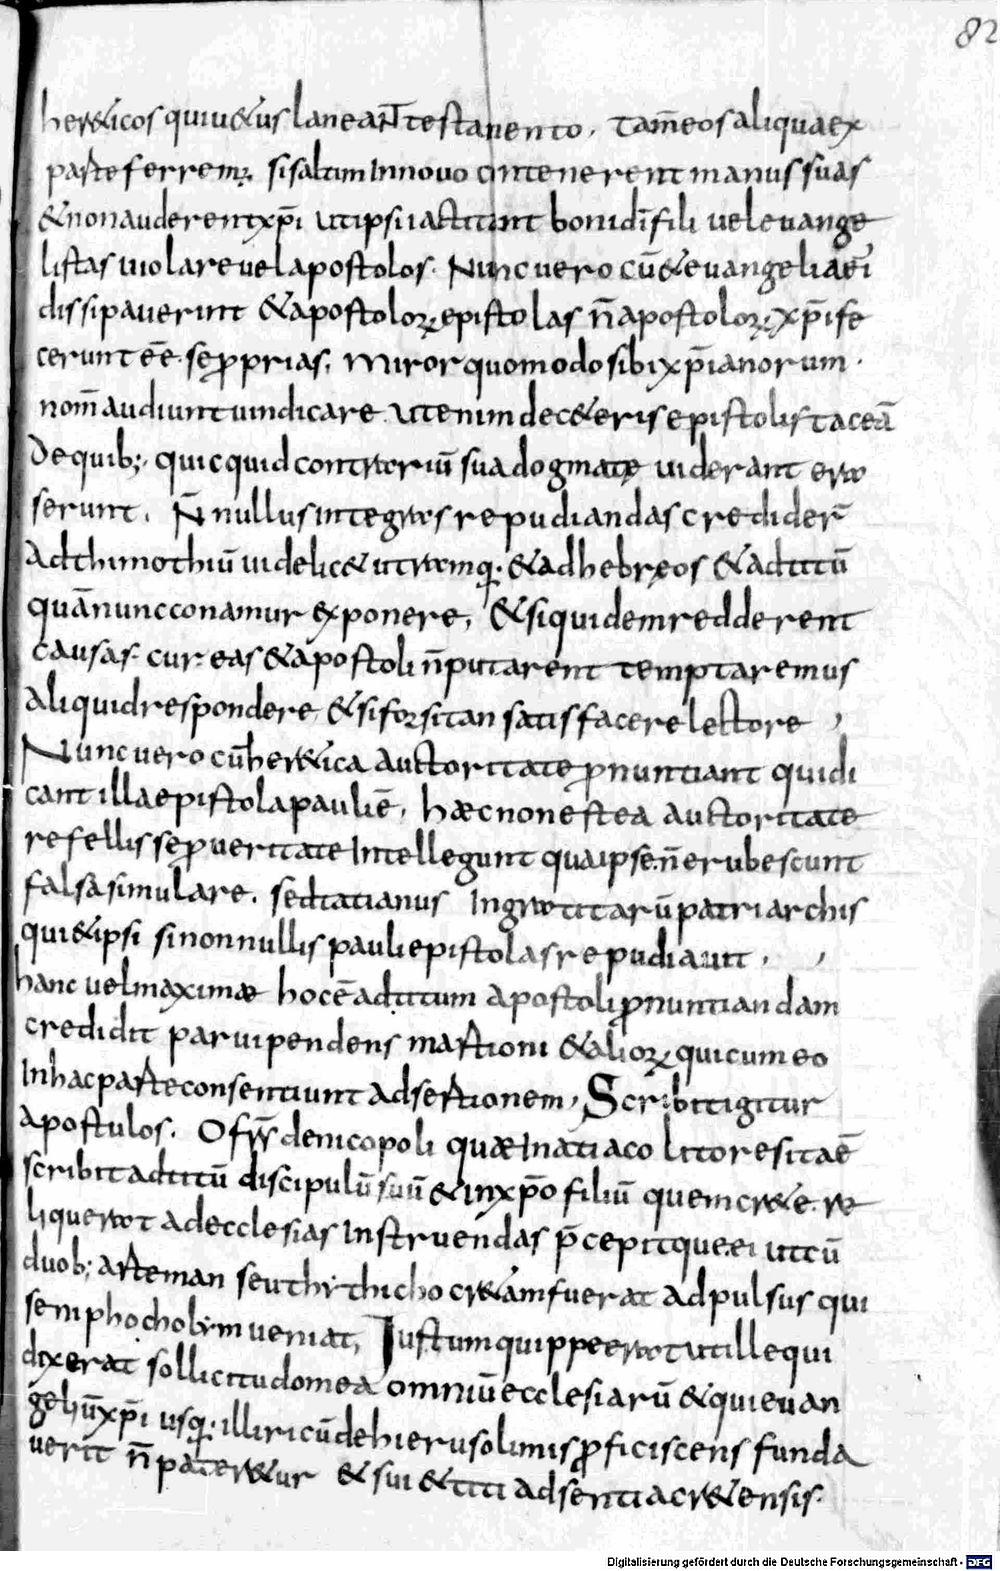 82
her&icos qui u&us laneaNT testamento. tam̄ eos aliqua ex
parte ferrem; si saltim In nouo continerent manus suas
& non auderent xp̄i ut ipsi iactitant boni dī fili uel euange
listas uiolare uel apostolos. Nunc uero cū & euangelia ei
dissipauerint & apostoloꝝ epistolas n̄ apostoloꝝ xp̄i fe
cerunt eē. se ꝓprias. Miror quomodo sibi xp̄ianorum
nom̄ audiunt uindicare ut enim de c&eris epistolis taceā
De quib; quicquid contrariū sua dogmate uiderant era
serunt. N̄nullus integras repudiandas credider̄
Ad thimothiū uidelic& utramq; & ad hebreos & ad titū
quā nunc conamur exponere, & siquidem redderent
causas cur eas & apostoli n̄ putarent temptaremus
aliquid respondere & si forsitan satisfacere lectore
Nunc uero cū her&ica auctoritate ꝓnuntiant qui di
cant illa epistola pauli ē, hæc non est ea auctoritate
refellis se ꝓ ueritate Intellegunt qua ipse n̄ erubescunt
falsa simulare. sed tatianus In gratitarū patriarchis
qui & ipsi sinonnullis pauli epistolas repudiauit,
hanc uel maximæ hoc ē ad titum apostoli ꝓnuntiandam
credidit paruipendens martioni & alioꝝ qui cum eo
In hac parte consentiunt adsertionem, Scribit igitur
apostulos. O fr̄s de nicopoli quæ In atiaco litore sita ē
scribit ad titū discipulū suū & In xp̄o filiū quem cr&e. re
liquerat ad ecclesias Instruendas p̄cepitque ei ut cū
duob; arteman seu thythicho cr&am fuerat adpulsus qui
semphocholym ueniat, Iustum quippe erat ut ille qui
dixerat sollicitudo mea omniū ecclesiarū & qui euan
geliū xp̄i usq; illiricū de hierusolimis ꝓficiscens funda
uerit n̄ pater&ur & sui & titi adsentia cr&ensis.
Digitalisierung gefördert durch die Deutsche Forschungsgemeinschaft - DFG